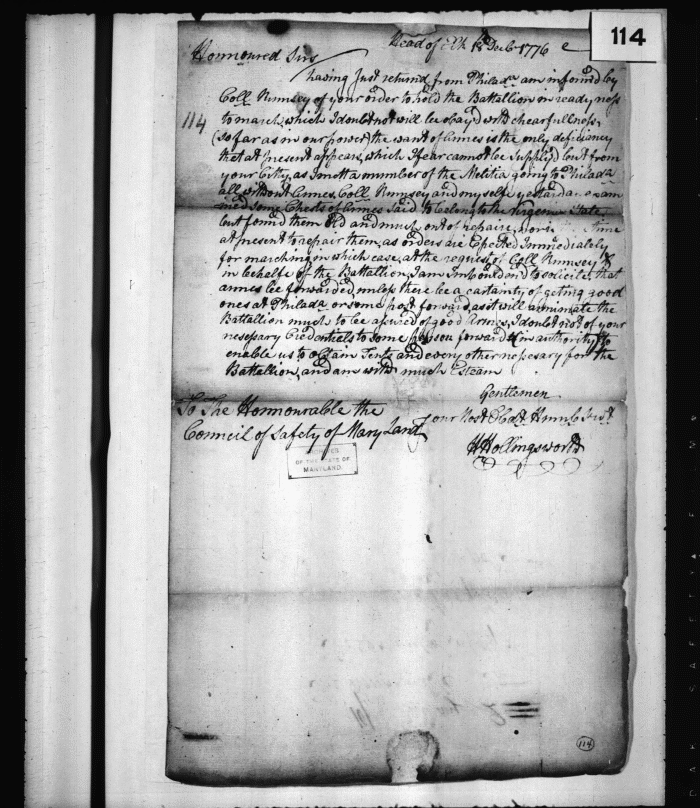 114
Head of Elk 13 Decbr 1776
Honnoured Sirs
having Just returnd from Philada am informd by
Coll Rumsey of your order to hold the Battallion in readyness
114
to march, which I doubt not will be obayd with chearfullness,
(so far as in our power) the want of Armes is the only deficiancy
that at present appears, which I fear cannot be Supply'd but from
your Citty, as I mett a number of the Melitia going to Philada
all without Armes. Coll Rumsey and myself yestarda exam
ined some Chests of Armes Said to belong to the Virgena State,
but found them Old and much out of repaire, nor is time
at present to repair them, as orders are Expected Immediately
for marching on which case, at the request of Coll Rumsey &
in behalfe of the Battallion, I am Imboulden'd to solicite, that
armes be forwarded, unless there be a cartainty of geting good
ones at Philada or some post forward, as it will annimate the
Battallion much to be asured of good Armes, I doubt not of your
nesessary Credentiels to some person forward in authority to
enable us to obtain Tents and every other nesesary for the
Battallion, and am with much Esteam
Gentlemen
To The Honnourable the
your Most Obdt Humb Servt
Council of Safety of Mary Land
H Hollingsworth
ARCHIVES
OF THE STATE OF
MARYLAND.
114